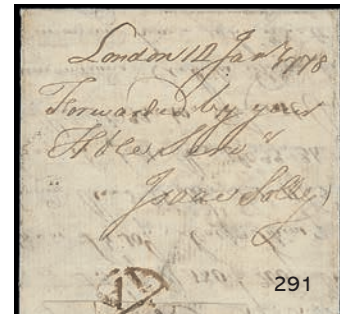 London 12 Jan.y 1778
Forwarded by your
Hble Serv.t
Isaac Solly
291